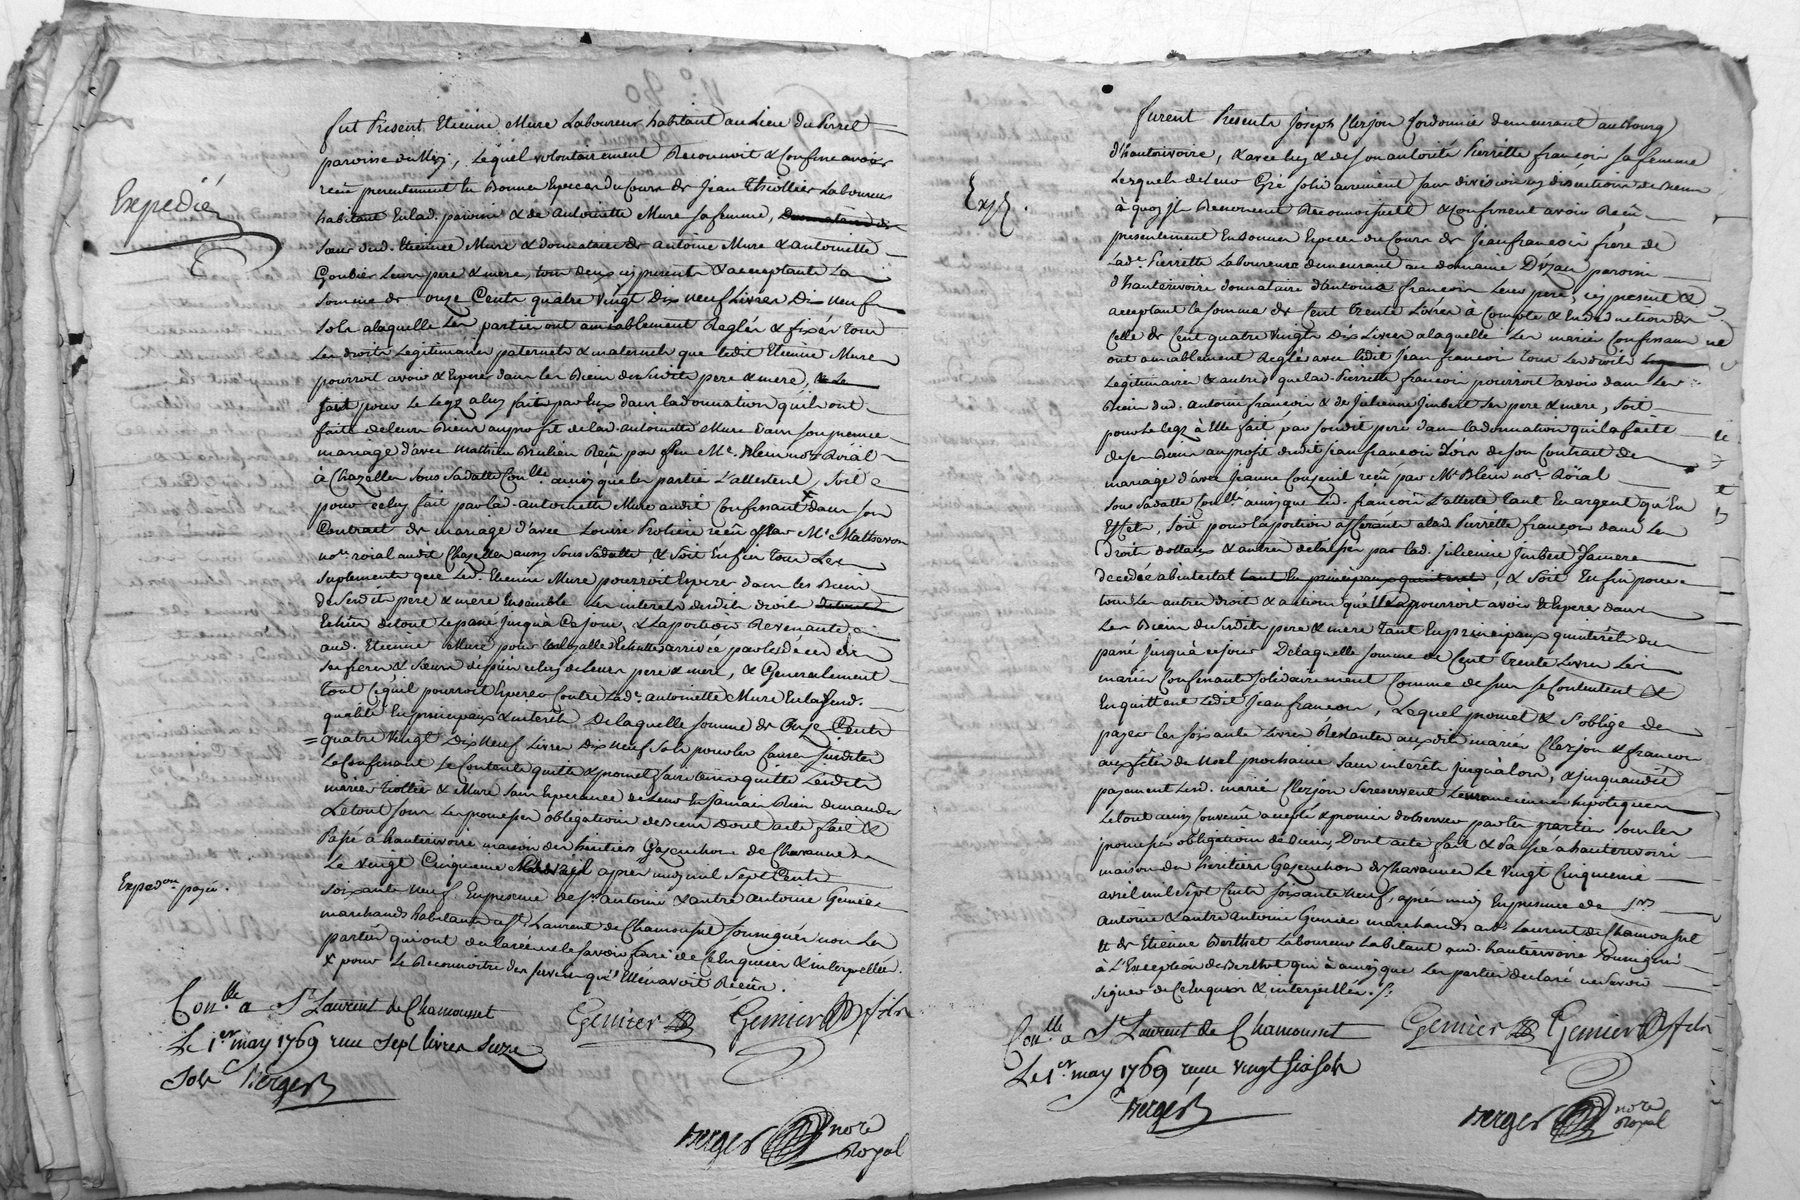 Expediéz
fut Present Etiënne Mure Laboureur habitant au Lieu du Perret
paroisse du , Lequel volontairement Reconnoit & Confesse avoir
reçu presentement En Bonnes Especes du Cours de Jean thiollier Laboureur
habitant En lad. paroisse & de antoinette Mure sa femme,
sœur dud. Etienne Mure & donnataire de antoine Mure & antoinette
Goubier Leurs pere & mere, tous deux icy presents & acceptants La
somme de onze Cents quatre vingt Dix neuf Livres Dix neuf
sols a laquelle Les parties ont amiablement Reglés & fixés tous
Les droits Legitimaires paternels & maternels que ledit Etienne Mure
pourroit avoir & Esperer dans les Biens desdits pere & mere,
tant pour Le Legz a luy fait par Eux dans la donnation qu'ils ont
faitte de leurs Biens au profit de lad. antoinette Mure dans son premier
mariage d'avec Mathieu Brulien Reçu par feu Me. Blein nore Roial
à Chazelles sous sa datte Con.lle ainsy que les parties L'attestent, soit
pour celuy fait par lad. antoinette Mure audit Confessant dans son
Contrat de mariage d'avec Louise reçu par Me Mathevon
nore. roial audit Chazelles aussy sous sa datte, & soit Enfin tous Les
suplements que Led. Etienne Mure pourroit Esperer dans les Biens
desdits pere & mere Ensemble Les interets desdits droits
Echus de tout Le passé jusqua Ce jour, & La portion Revenante
aud. Etienne Mure pour arrivée par les décès de
ses freres & sœurs depuis celuy de Leurs pere & mere, & Generalement
tout Ce qu'il pourroit Esperer Contre Lade. antoinette Mure En lad.
qualité En principaux & interets De laquelle somme de Onze Cents
= quatre vingt Dix Neuf Livres Dix neuf sols pour les Causes susdites
Le Confessant se Contente quitte & promet faire tenir quitte Lesdits
mariés Tiollier & Mure sans Esperance de Leur En jamais Rien demander
Le tout sous Les promesses obligations de Biens Dont acte fait &
Passé à hauterivoire maison des héritiers Gazanchon de Chavannes
Le vingt Cinquieme avril après midy mil sept Cents
soixante neuf En presence de sr antoine & autre antoine Gemier
marchands habitants a St. Laurent de Chamousset soussignés non Les
parties qui ont declarée ne le savoir faire de Ce Enquises & interpellée.
X pour Le Reconnoitre des services qu'Elle En avoit Reçeus.
Exped.on payée.
Con.lle a St. Laurent de Chamousset
Le 1er. may 1769 reçu sept livres seize
sols Berger
Gemier Gemier fils
Berger nore
Royal
Exp.
furent Presents Joseph Clerjon Cordonnier demeurant au Bourg
d'hauterivoire, & avec luy & de son autorité Pierrette françois sa femme
Lesquels de Leur Gré solidairement sans division ny discution de Biens
à quoy Ils Renoncent Reconnoissent & Confessent avoir Reçu
presentement En Bonnes Especes du Cours de Jean francois frere de
Lade. Pierrette Laboureur demeurant au domaine paroisse
d'hauterivoire donnataire d'antoine françois Leur pere, icy present &
acceptant la somme de Cent trente Livres à Compte & En deduction de
Celle de Cent quatre vingts Dix Livres a laquelle Les mariés Confessant
ont amiablement Reglé avec ledit Jean francois tous Les droits
Legitimaires & autres que lad. Pierrette françois pourroit avoir dans Les
Biens dud. Antoine françois & de Julienne Imbert ses pere & mere, soit
pour le legz à Elle fait par sondit pere dans la donnation qu'il a faite
de ses Biens au profit dudit jean francois Lors de son Contrat de
mariage d'avec Jeanne reçu par Me. Blein nore. Roïal
sous sa datte Con.lle ainsy que Led. francois L'atteste tant En argent qu'En
Effets, soit pour la portion afferante a lad. Pierrette françois, dans Les
droits dottaux & autres delaissés par lad. Julienne Imbert sa mere
decedée abintestat, & soit Enfin pour
tous Les autres droits & actions qu'elle pourroit avoir & Esperer dans
Les Biens desdits pere & mere tant En principaux qu'interêts du
passé jusqu'à ce jour De laquelle somme de Cent trente Livres Les
mariés Confessants solidairement Comme dessus se Contentent &
En quittent Ledit Jean francois, Lequel promet & s'oblige de
payer les soixante Livres Restantes auxdits mariés Clerjon & francois
aux fêtes de Noel prochaine sans interêts jusqu'alors, & jusqu'audit
payement Lesd. mariés Clerjon se reservent Leurs anciennes hipoteques
Le tout ainsy convenu accepté & promis d'observer par les parties sous les
promesses obligations de Biens Dont acte fait & Passé a hauterivoire
maison des heritiers Gazanchon de Chavannes Le vingt Cinquieme
avril mil sept Cents soixante neuf, après midy En presence de srs.
antoine & autre antoine Gemier marchands a St. Laurent de Chamousset
& de Etienne Berthet Laboureur habitant aud. hauterivoire soussignés
à L'Exception de Berthet qui a ainsy que Les parties declaré ne savoir
signer de Ce Enquis & interpellés.
Con.lle a St. Laurent de Chamousset
Le 1er. may 1769 reçu vingt six sols
Berger
Gemier Gemier fils
Berger nore
Royal